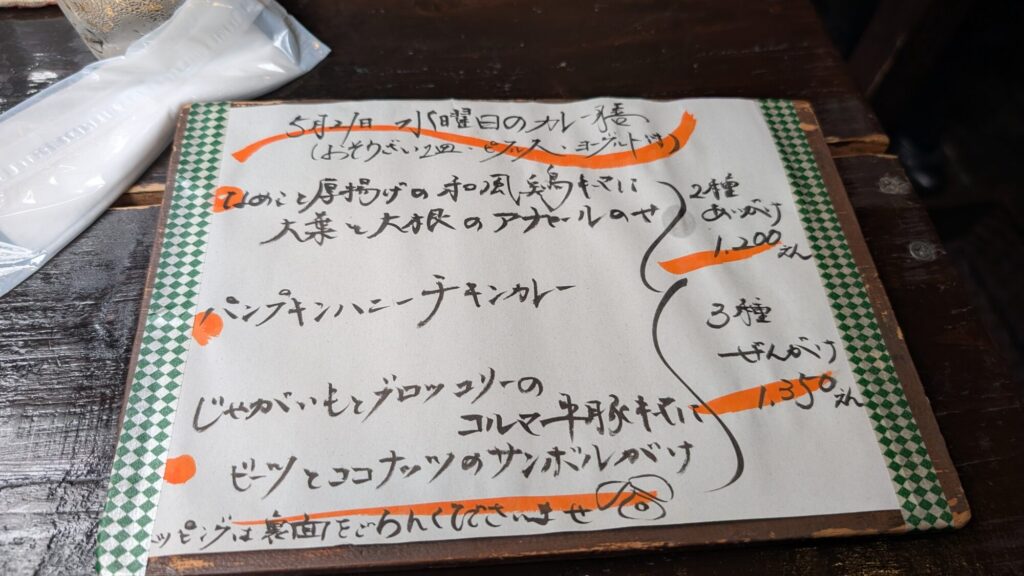 5月21日 水曜日のカレー様
(おそうざい2皿・ピクルス・ヨーグルト付)
なめこと厚揚げの和風鶏キーマに
大葉と大根のアチャールのせ
2種
あいがけ
1.200えん
パンプキンハニーチキンカレー
3種
ぜんがけ
1.350えん
じゃがいもとブロッコリーの
コルマ牛豚キーマに
ビーツとココナッツのサンボルがけ
ッピングは裏面をごらんくださいませ